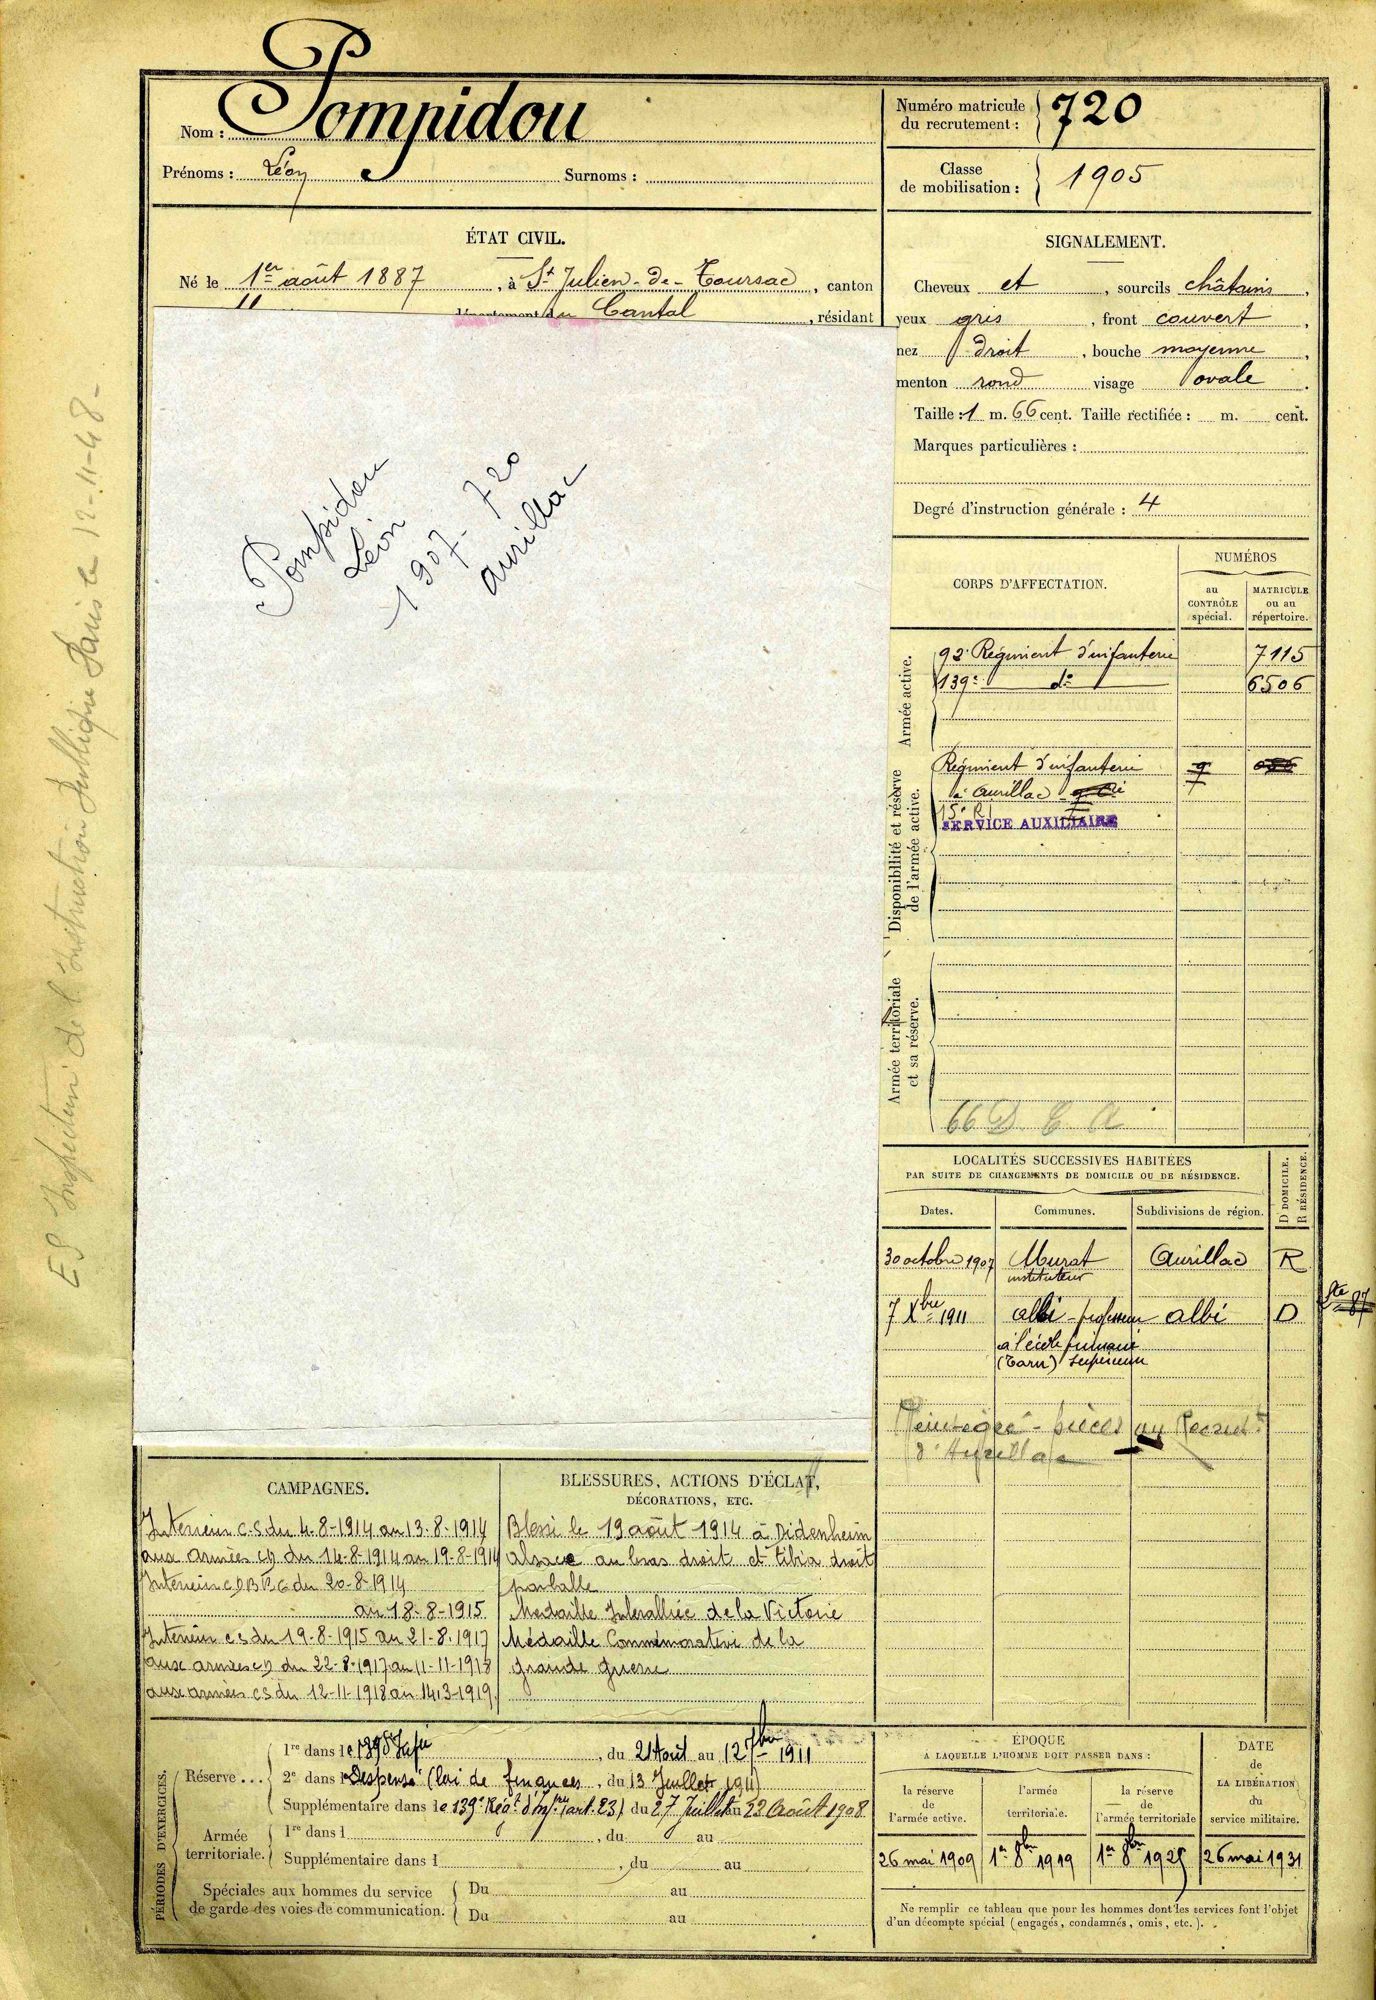 Nom : Pompidou
Prénoms : Léon Surnoms :
Numéro matricule
du recrutement : 720
Classe
de mobilisation : 1905
ÉTAT CIVIL.
Né le 1er août 1887, à St Julien-de-Toursac, canton
département du Cantal, résidant
SIGNALEMENT.
Cheveux et, sourcils châtains,
yeux gris, front couvert,
nez droit, bouche moyenne,
menton rond visage ovale.
Taille : 1 m. 66 cent. Taille rectifiée : m. cent.
Marques particulières :
Degré d'instruction générale : 4
Pompidou
Léon
1907 - 720
Aurillac
ES Inspecteur de l'Instruction Publique Paris le 12-11-48-
CORPS D'AFFECTATION.
NUMÉROS
au
CONTRÔLE
spécial.
MATRICULE
ou au
répertoire.
Armée active.
92e Régiment d'infanterie 7115
139e do 6506
Disponibilité et réserve
de l'armée active.
Régiment d'infanterie
à Aurillac
15e RI
SERVICE AUXILIAIRE
Armée territoriale
et sa réserve.
66 D C A
LOCALITÉS SUCCESSIVES HABITÉES
PAR SUITE DE CHANGEMENTS DE DOMICILE OU DE RÉSIDENCE.
D DOMICILE.
R RÉSIDENCE.
Dates. Communes. Subdivisions de région.
30 octobre 1907 Murat Aurillac R
instituteur
7 Xbre 1911 Albi - professeur Albi D
à l'école primaire
(Tarn) supérieure
pièces au Recrut.t
d'Aurillac
CAMPAGNES.
Intérieur c.s du 4-8-1914 au 13-8-1914
aux armées cd du 14-8-1914 au 19-8-1914
Intérieur c.d B R G du 20-8-1914
au 18-8-1915
Intérieur cs du 19-8-1915 au 21-8-1917
aux armées cd du 22-8-1917 au 11-11-1918
aux armées cs du 12-11-1918 au 14-3-1919.
BLESSURES, ACTIONS D'ÉCLAT,
DÉCORATIONS, ETC.
Blessé le 19 août 1914 à Didenheim
Alsace au bras droit et tibia droit
par balle
Médaille Interalliée de la Victoire
Médaille Commémorative de la
grande guerre
PÉRIODES D'EXERCICES.
Réserve...
1re dans le 139e Infie, du 21 Août au 12 7bre 1911
2e dans l Dispensé (loi de finances, du 13 Juillet 1911)
Supplémentaire dans le 139e Régt d'Infrie (art. 23) du 27 Juillet au 23 Août 1908.
Armée
territoriale.
1re dans l , du au
Supplémentaire dans l , du au
Spéciales aux hommes du service
de garde des voies de communication.
Du au
Du au
ÉPOQUE
À LAQUELLE L'HOMME DOIT PASSER DANS :
la réserve
de
l'armée active.
l'armée
territoriale.
la réserve
de
l'armée territoriale
DATE
de
LA LIBÉRATION
du
service militaire.
26 mai 1909 1er 8bre 1919 1er 8bre 1925 26 mai 1931
Ne remplir ce tableau que pour les hommes dont les services font l'objet
d'un décompte spécial (engagés, condamnés, omis, etc.).